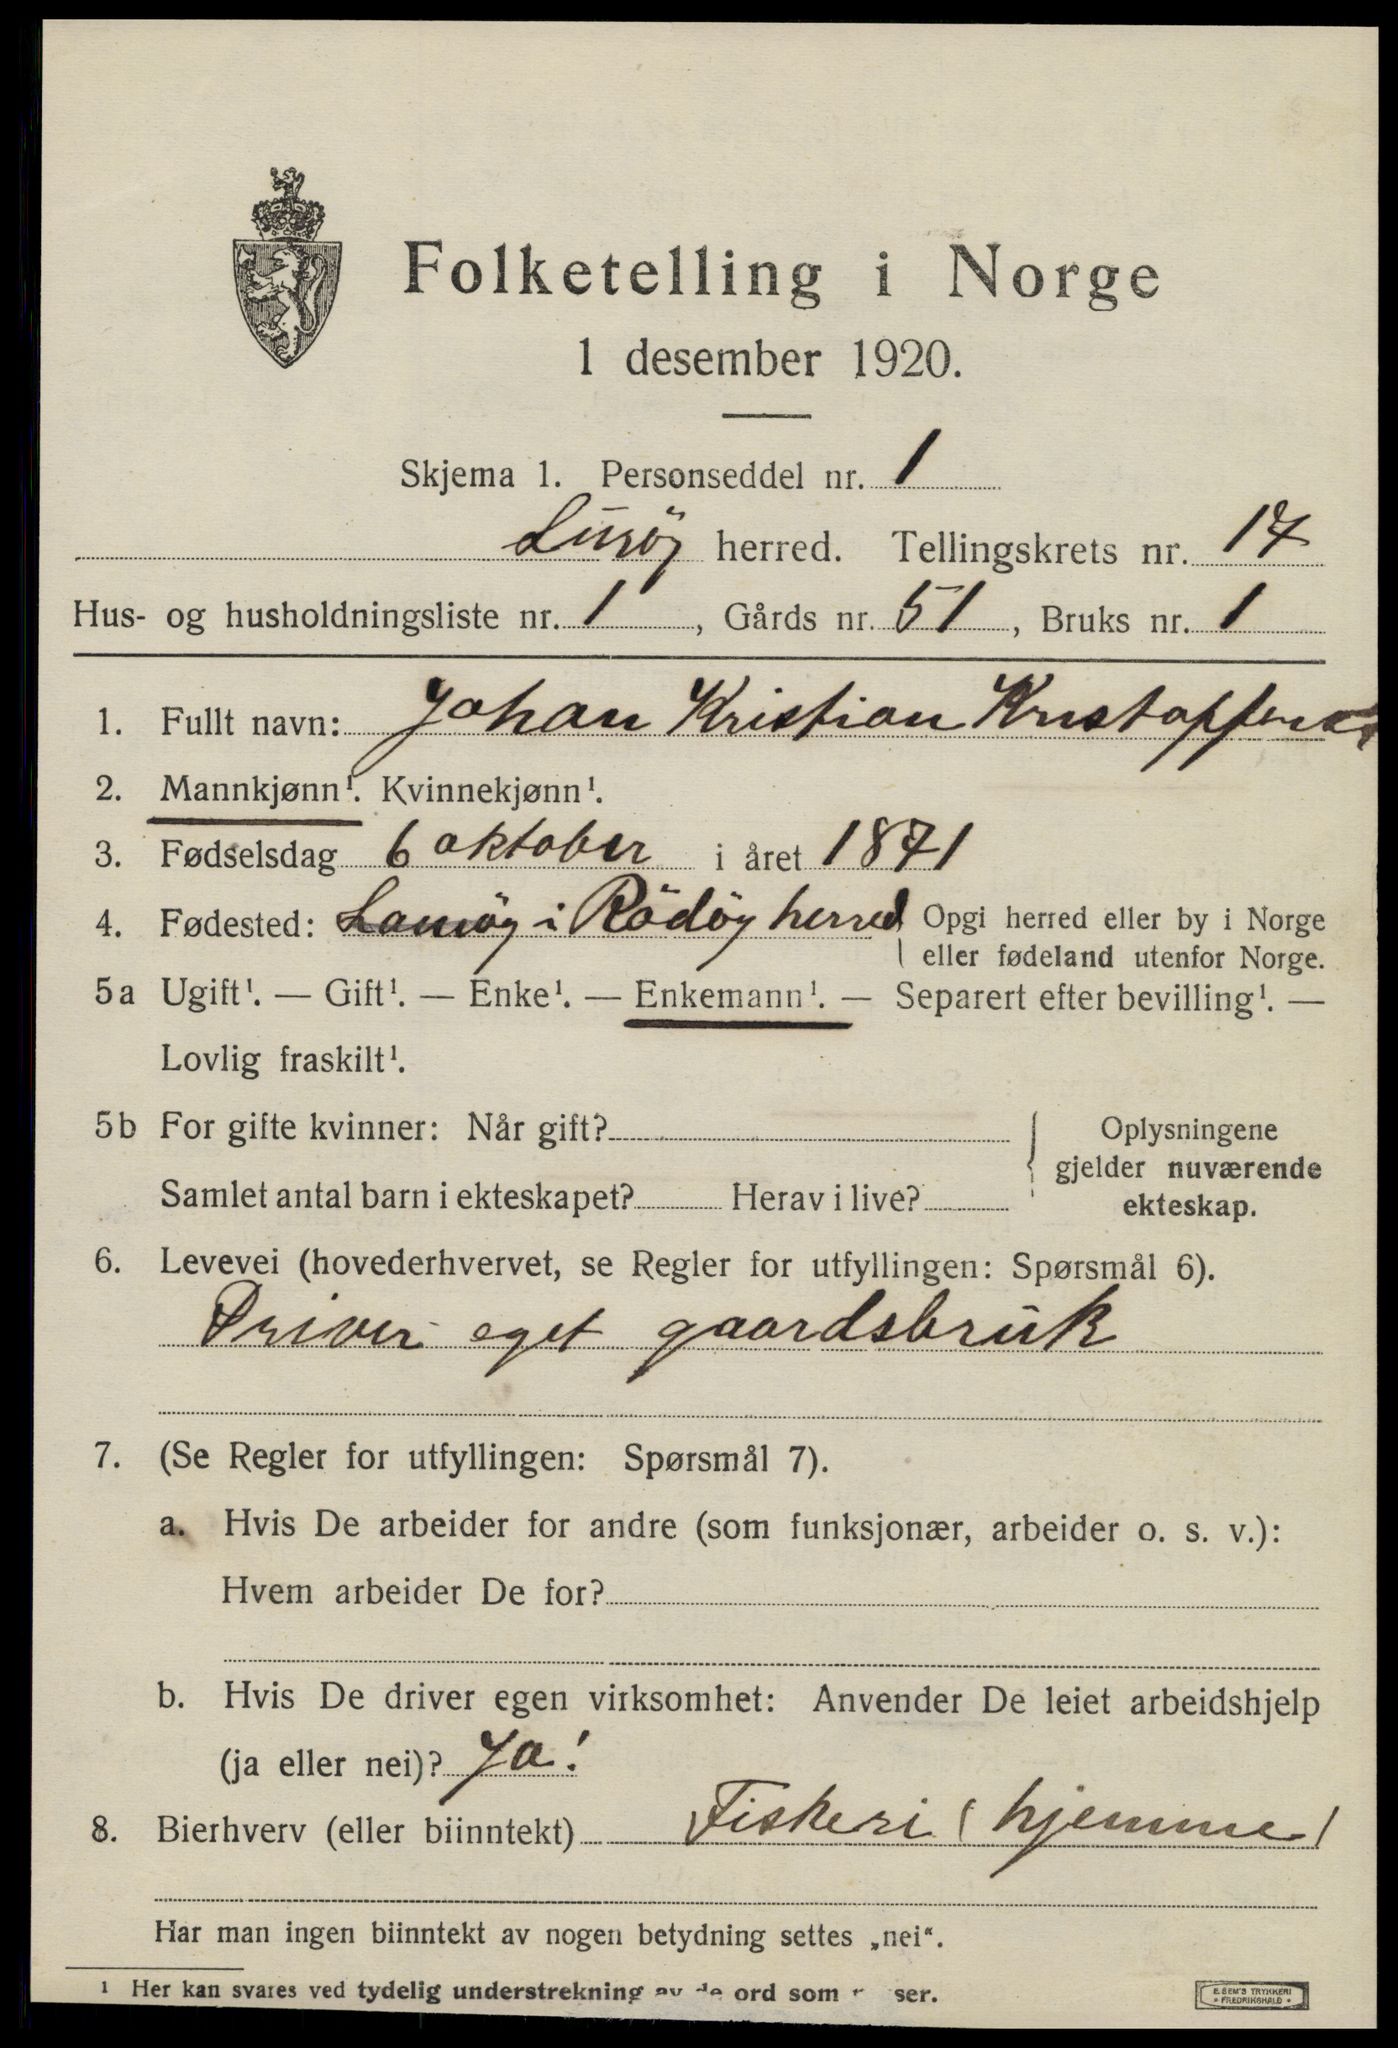 Folketelling i Norge
1 desember 1920.
Skjema 1. Personseddel nr. 1
Lurøy herred. Tellingskrets nr. 17
Hus- og husholdningsliste nr. 1, Gårds nr. 51, Bruks nr. 1
1. Fullt navn: Johan Kristian
2. Mannkjønn¹. Kvinnekjønn¹.
3. Fødselsdag 6 oktober i året 1871
4. Fødested: i Rödöy herred { Opgi herred eller by i Norge
eller fødeland utenfor Norge.
5a Ugift¹. — Gift¹. — Enke¹. — Enkemann¹. — Separert efter bevilling¹. —
Lovlig fraskilt¹.
5b For gifte kvinner: Når gift? { Oplysningene
gjelder nuværende
Samlet antal barn i ekteskapet? Herav i live? ekteskap.
6. Levevei (hovederhvervet, se Regler for utfyllingen: Spørsmål 6).
Driver eget gaardsbruk
7. (Se Regler for utfyllingen: Spørsmål 7).
a. Hvis De arbeider for andre (som funksjonær, arbeider o. s. v.):
Hvem arbeider De for?
b. Hvis De driver egen virksomhet: Anvender De leiet arbeidshjelp
(ja eller nei)? Ja!
8. Bierhverv (eller biinntekt) Fiskeri (hjemme)
Har man ingen biinntekt av nogen betydning settes „nei“.
¹ Her kan svares ved tydelig understrekning av de ord som
E. SEM'S TRYKKERI
• FREDRIKSHALD •